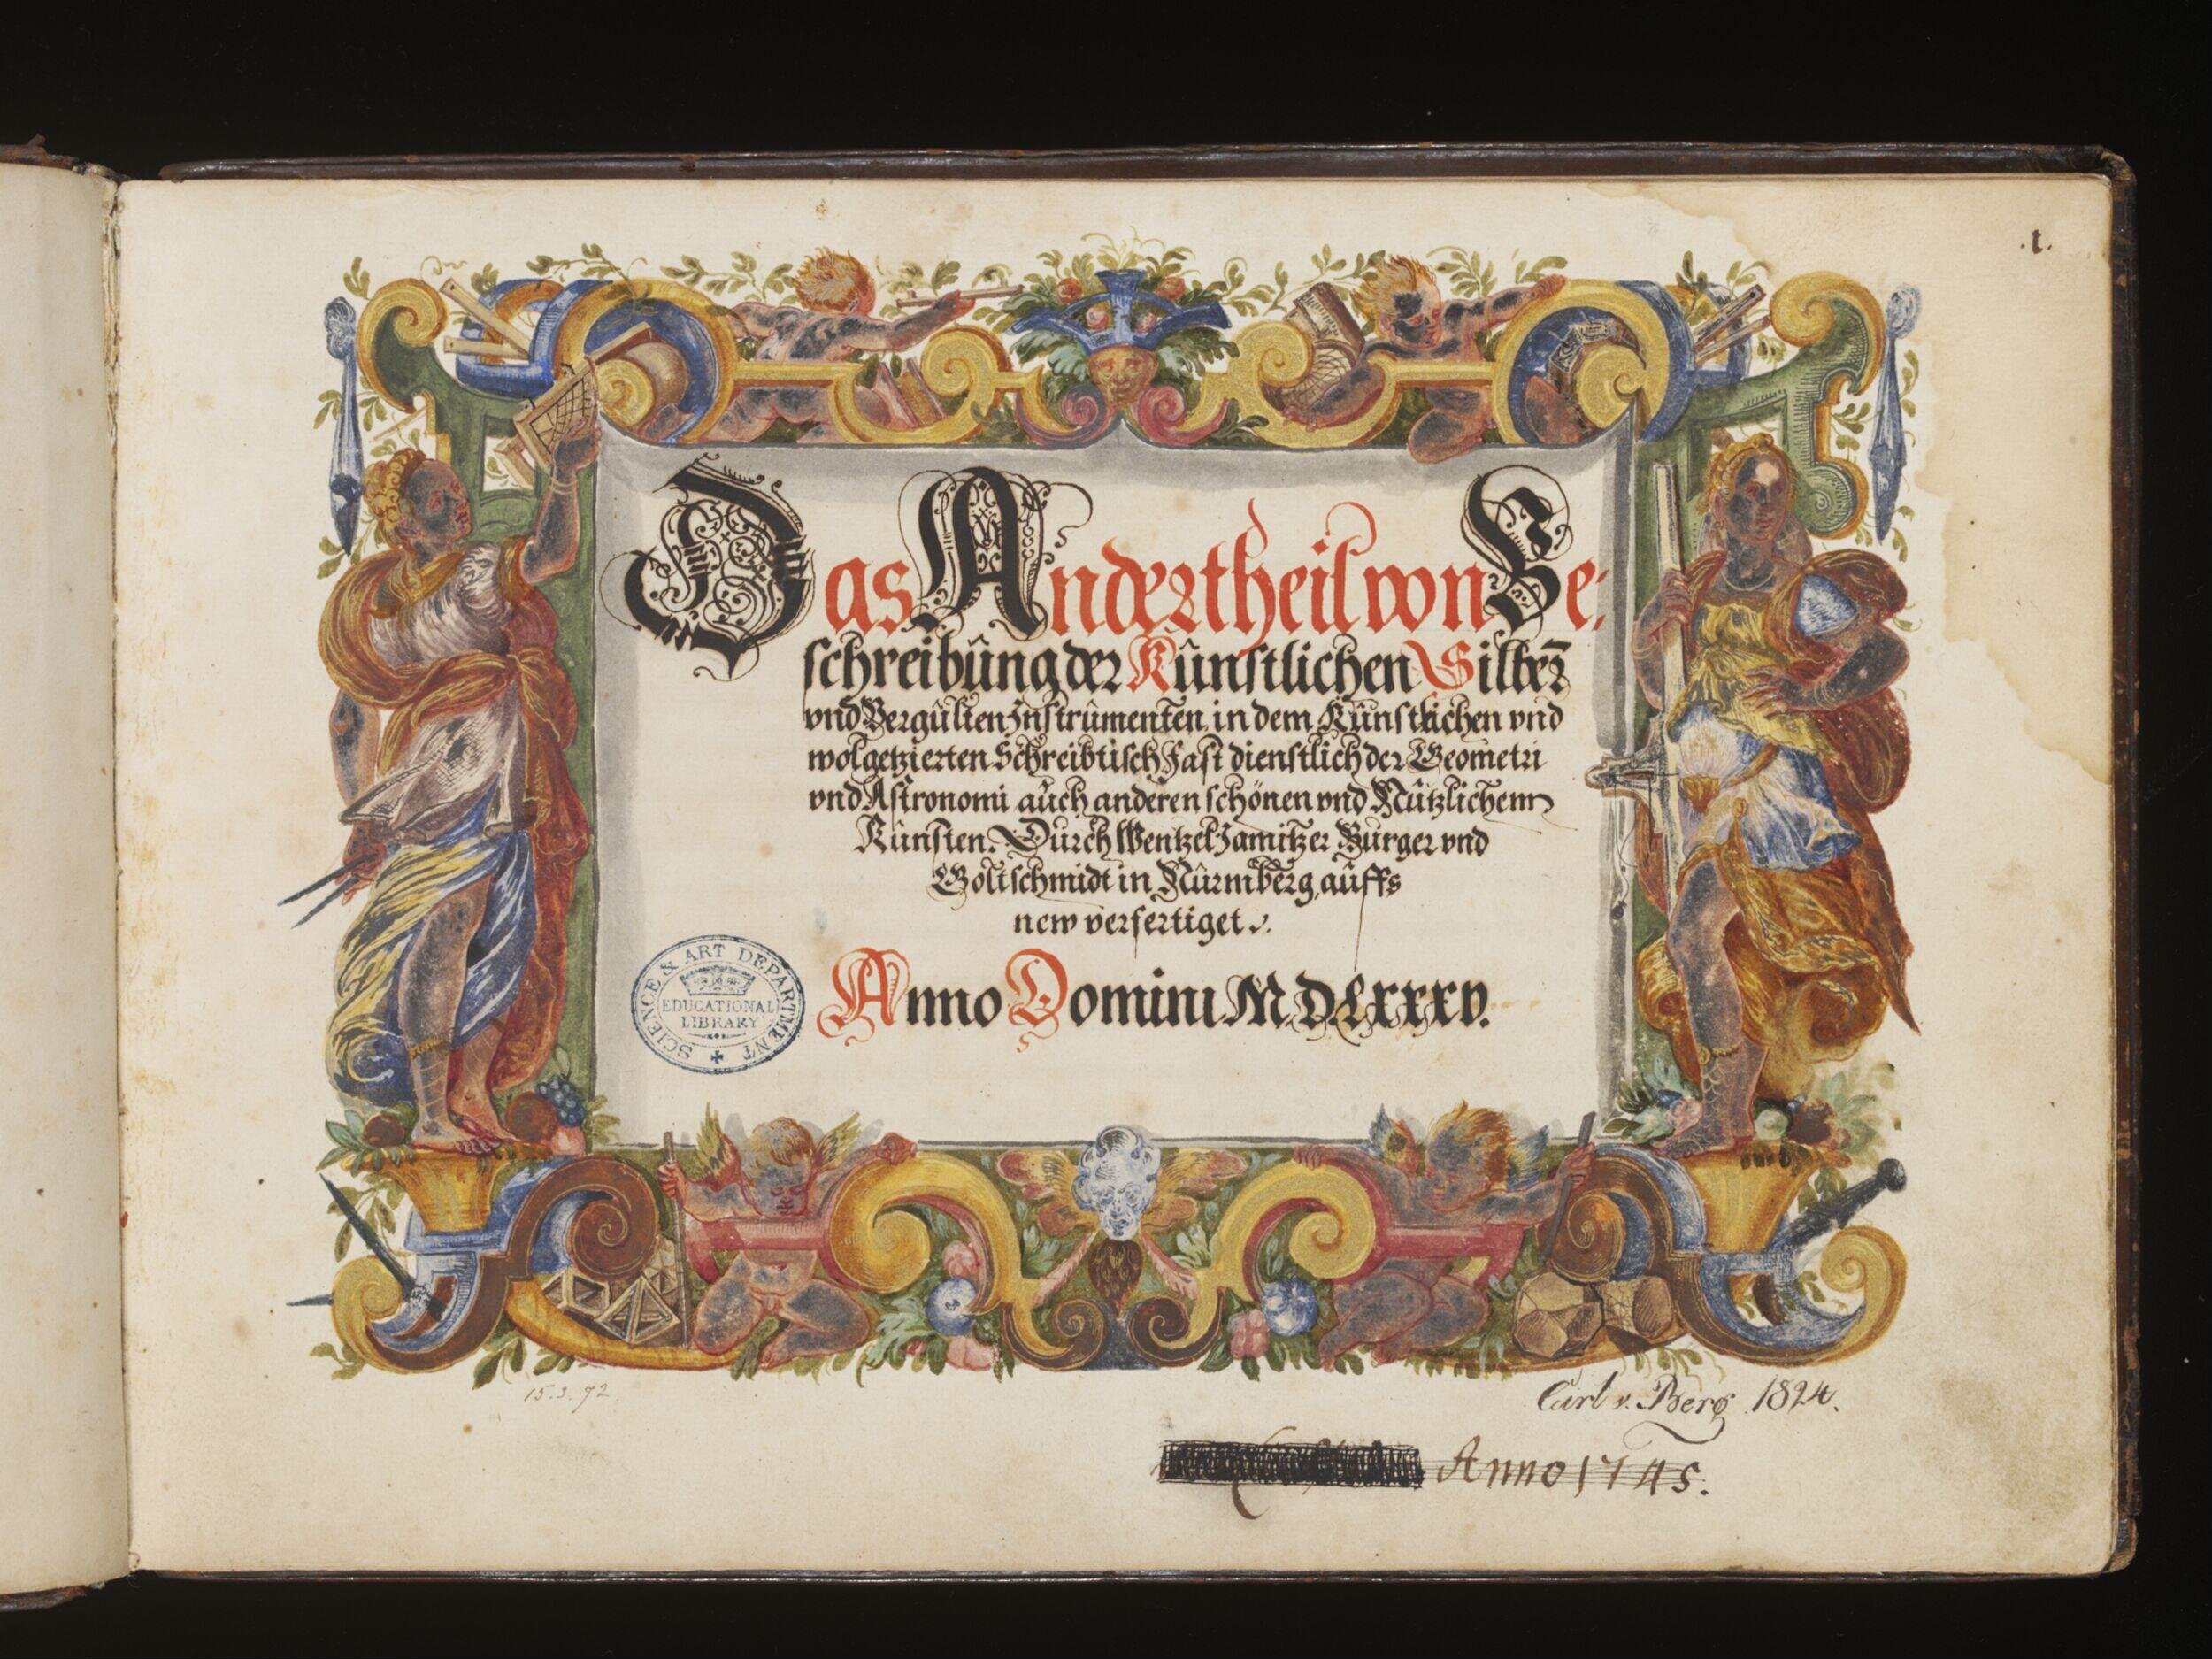 .1.
Das Andertheil von Be-
schreibung der Künstlichen Silber
vnd Vergulten Instrumenten in dem Künstlichen vnd
wolgetzierten Schreibtisch Fast dienstlich der Geometri
vnd Astronomi auch anderen schönen vnd Nützlichenn
Künsten. Durch Wentzel Jamitzer Burger vnd
Goltschmidt in Nürmberg, auffs
new verfertiget.
Anno Domini M.D.Lxxxv.
SCIENCE & ART DEPARTMENT
EDUCATIONAL
LIBRARY
15.3.72
Carl v. Berg 1824.
Anno 1745.